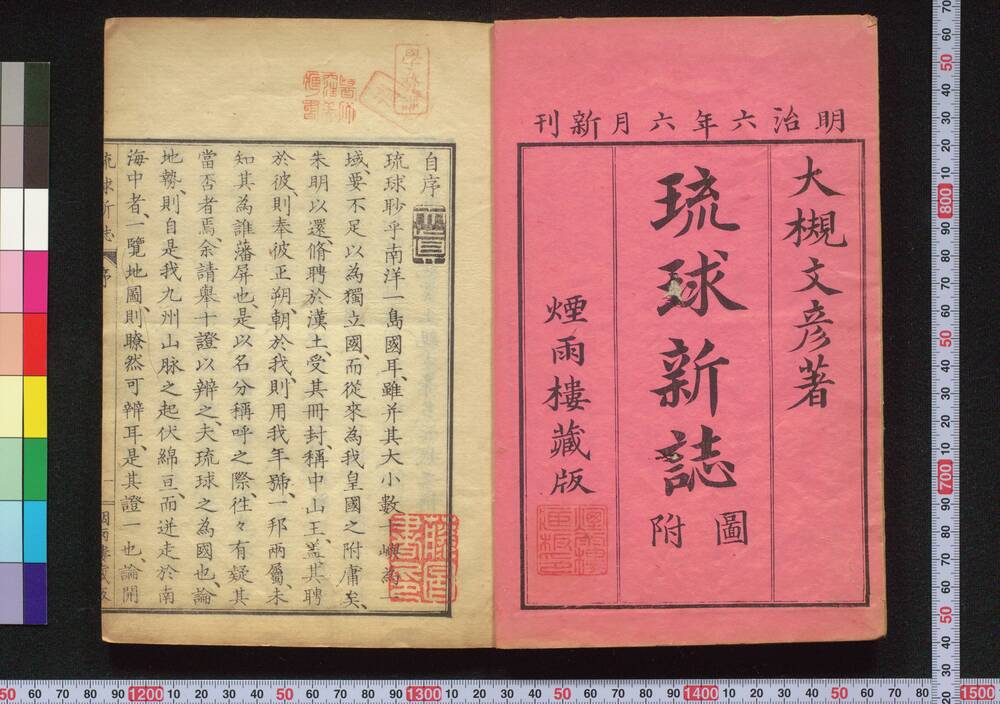 明治六年六月新刊
大槻文彦著
琉球新誌
圖附
煙雨樓藏版
自序
琉球眇乎南洋一島國耳、雖并其大小數十嶼為一
域、要不足以為獨立國、而從來為我皇國之附庸矣、
朱明以還、脩聘於漢土、受其冊封、稱中山王、盖其聘
於彼、則奉彼正朔、朝於我、則用我年號、一邦兩屬、未
知其為誰藩屏也、是以名分稱呼之際、往々有疑其
當否者焉、余請舉十證以辨之、夫琉球之為國也、論
地勢、則自是我九州山脉之起伏綿亘、而迸走於南
海中者、一覽地圖、則瞭然可辨耳、是其證一也、論開
琉球新誌
序
一
煙雨樓藏版